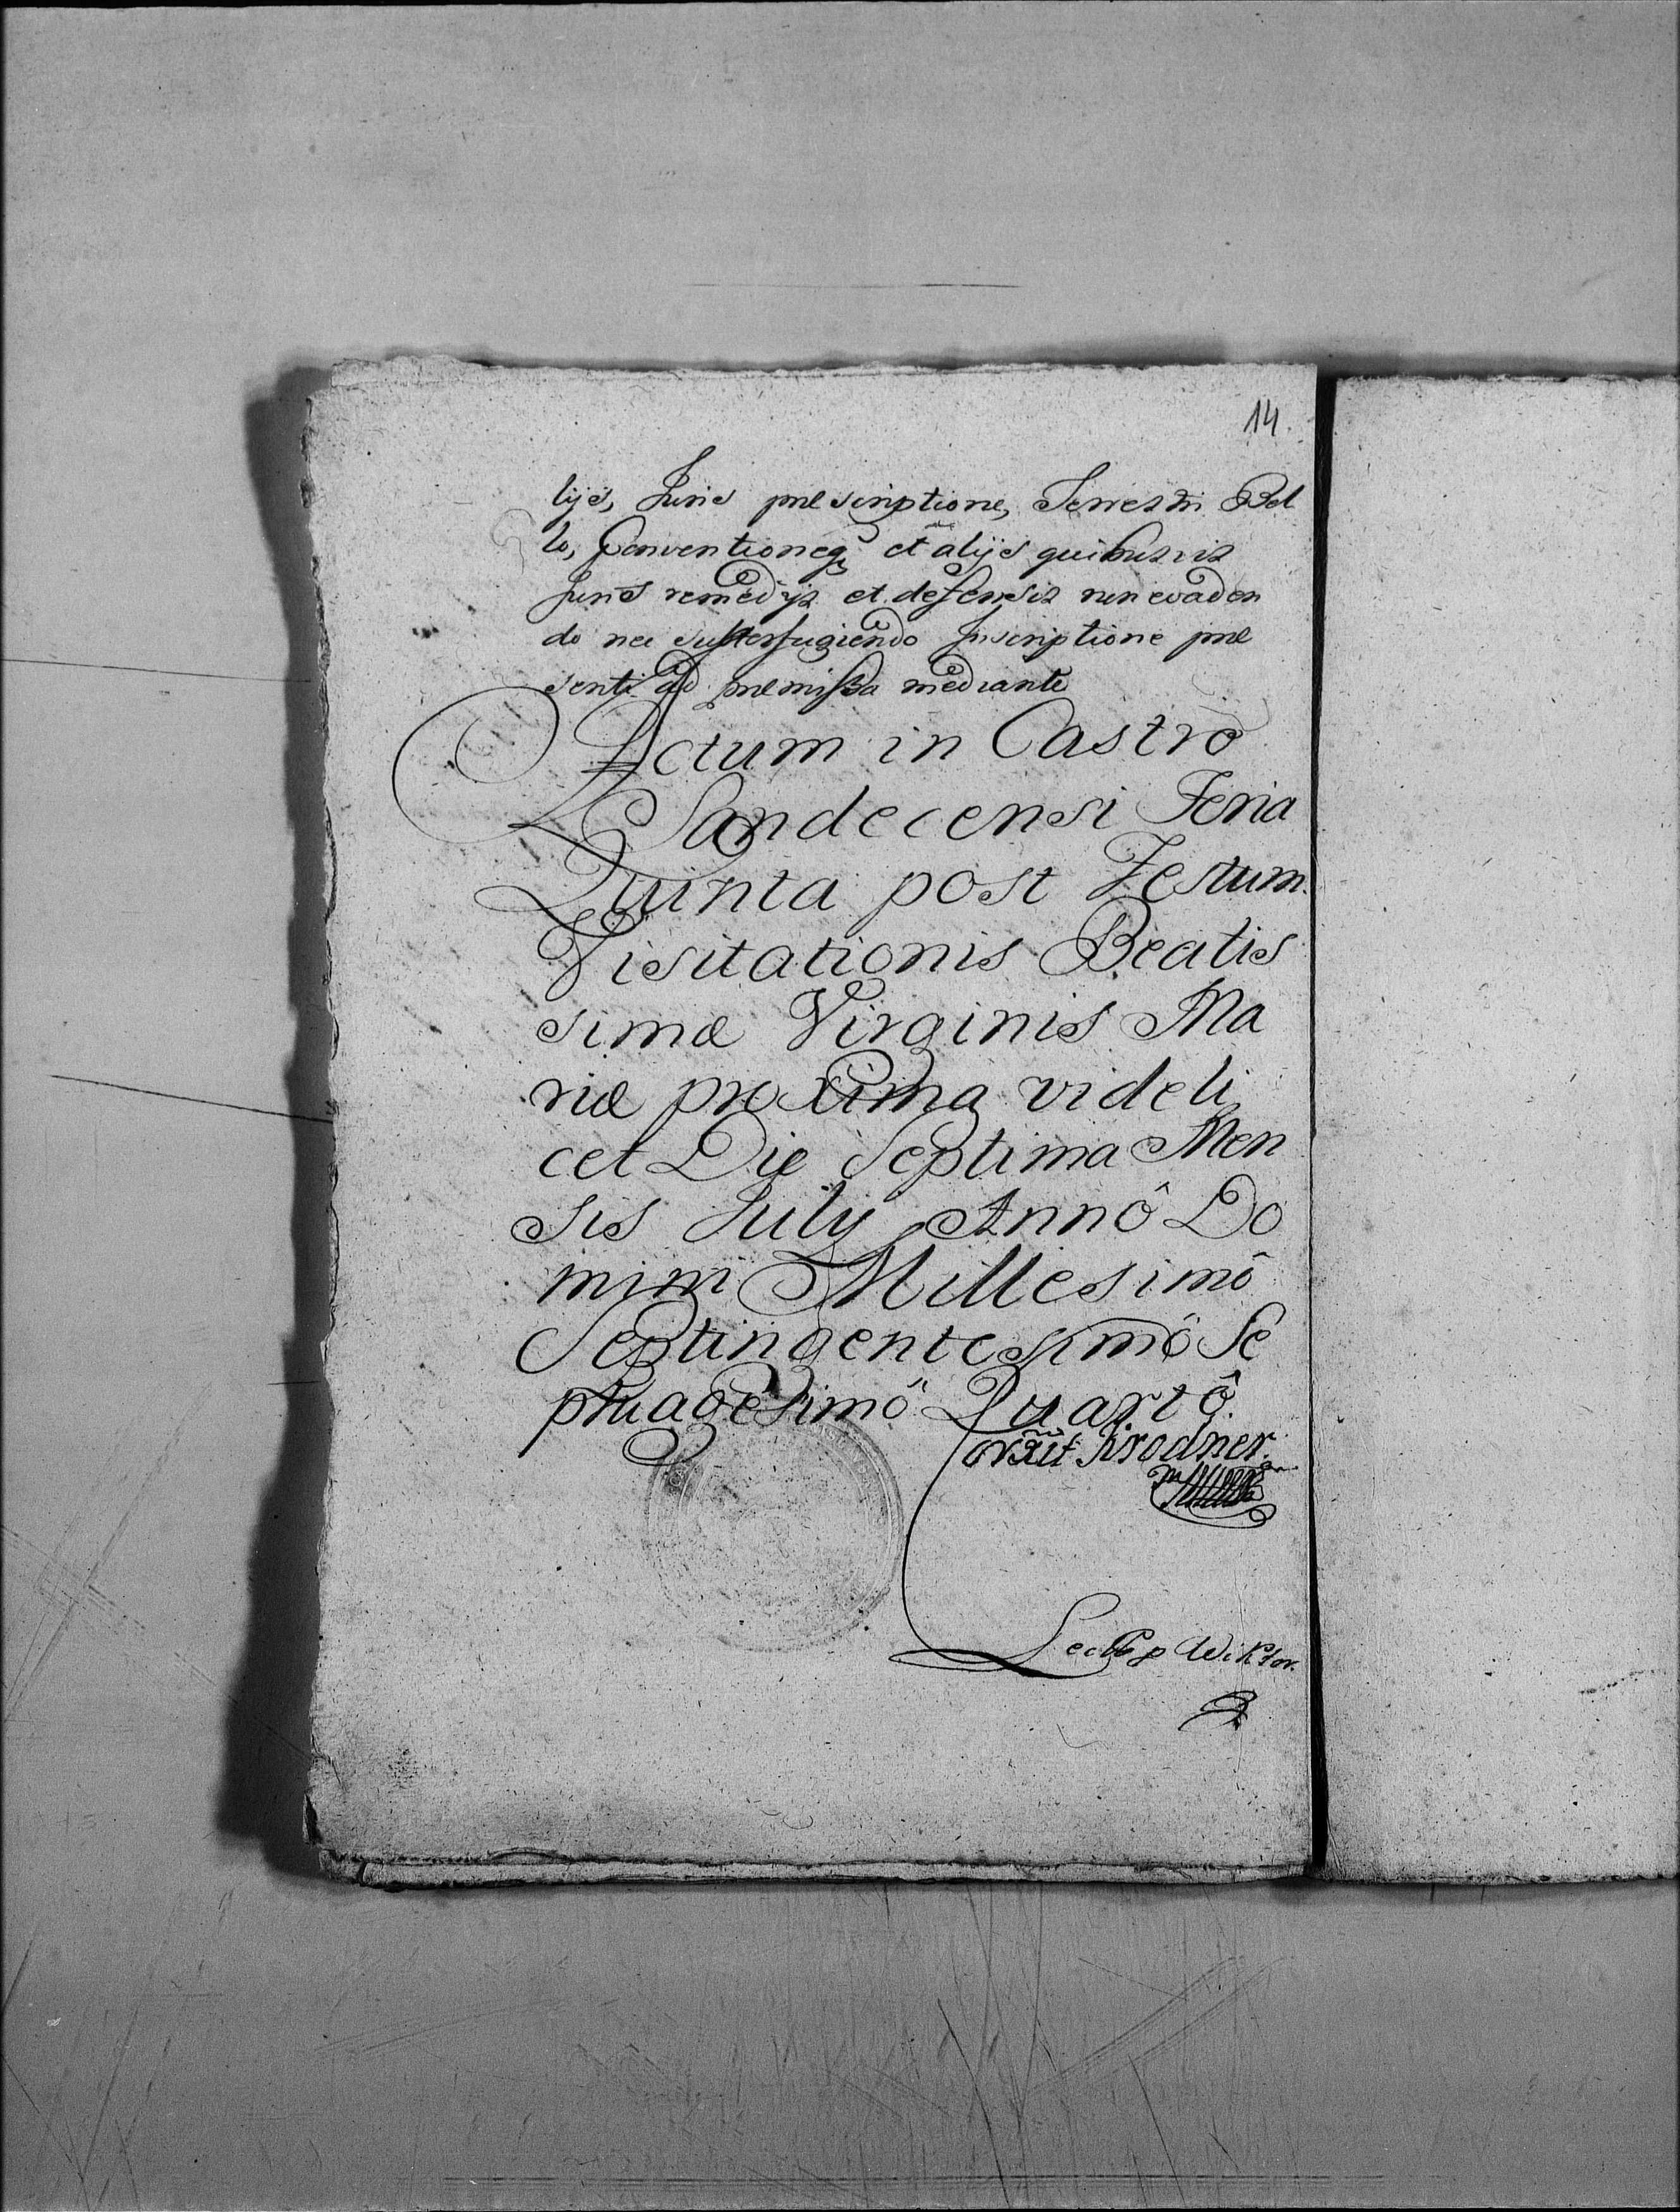 14.
lijs, Juris præscriptione, Terrestri Bel
lo, Conventioneq; et alijs quibusvis
Juris remedijs et defensis non evaden
do nec subterfugiendo Inscriptione præ
senti ad præmissa mediante
Actum in Castro
Sandecensi Feria
Quinta post Festum
Visitationis Beatis
simæ Virginis Ma
riæ proxima videli
cet Die Septima Men
sis July Annô Do
mini Millesimô
Septingentesimô Se
ptuagesimô Quartô.
Corrxit Krodner
Lectū p Wiktor.